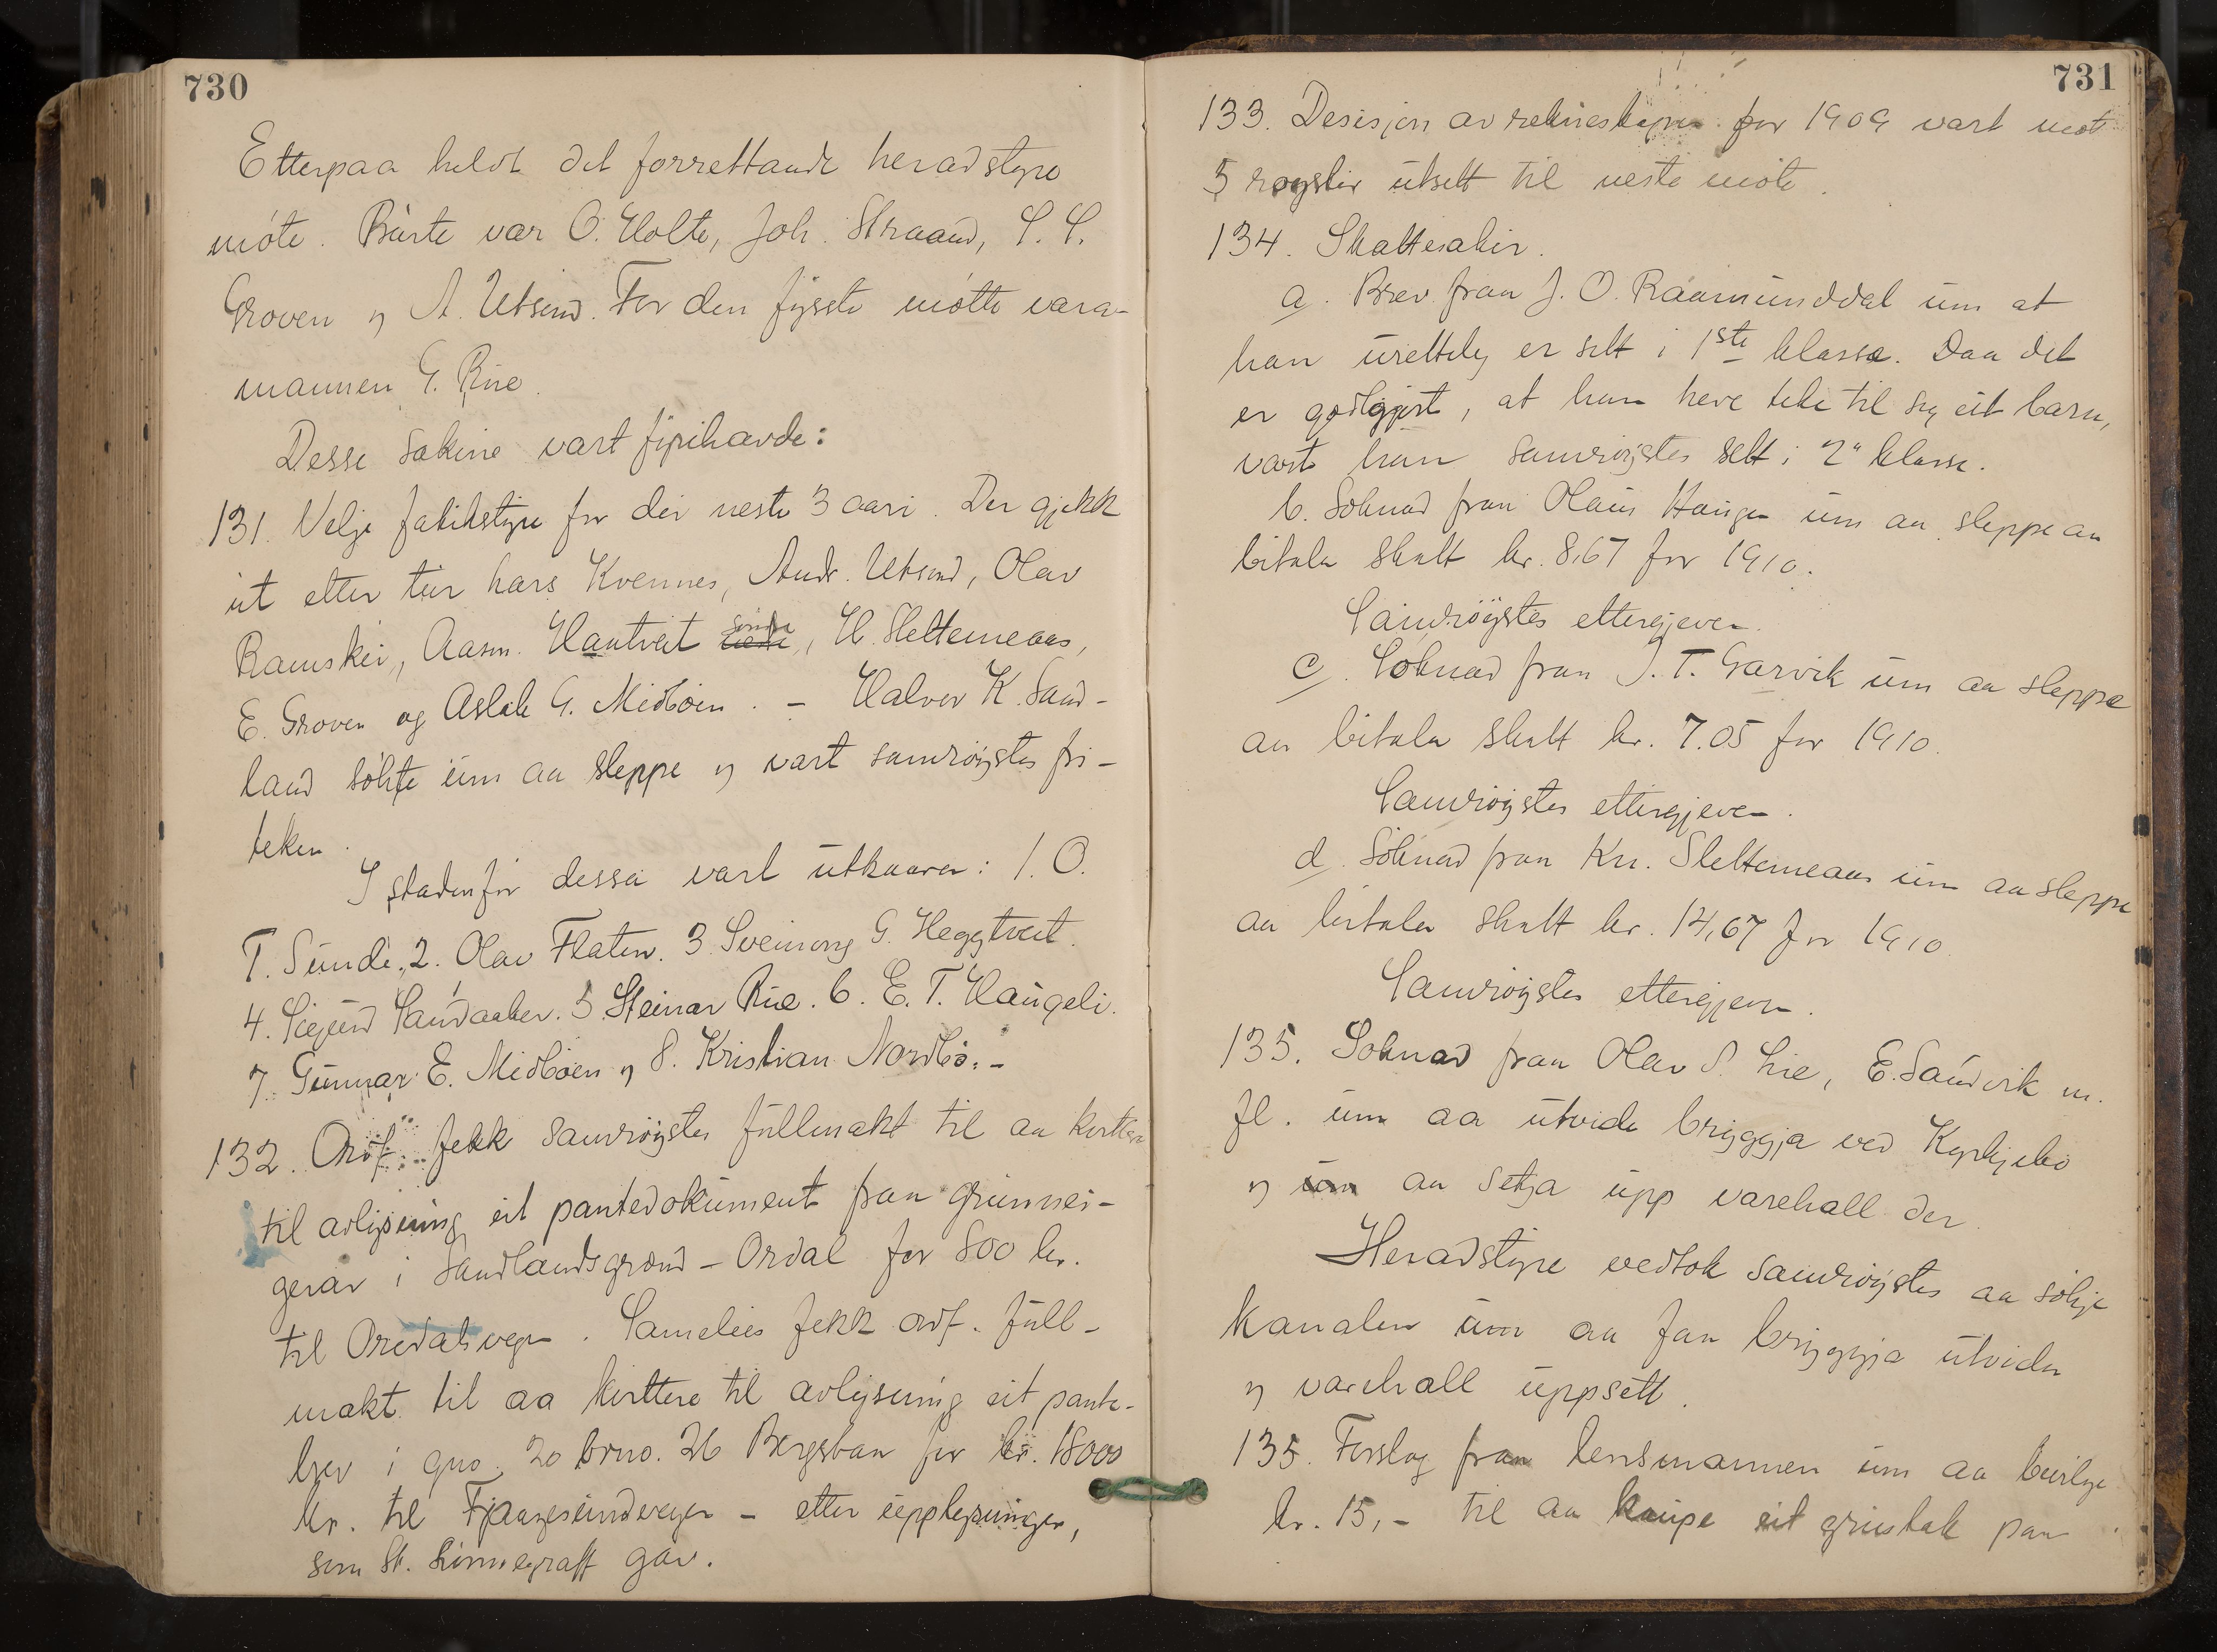 730
Etterpaa heldt det forrettande heradstyre
møte. Burte var O. Holte, Joh. Straand, S. S.
Groven og A. Utsund. For den fysste møtte vara-
mannen G. Rue.
Desse sakine vart fyrihavde:
131. Velje fatikstyre for dei neste 3 aari. Der gjekk
ut etter tur Lars Kvennes, Andr. Utsund, Olav
Ramskei, Aasm. Hantveit søndre, H. Slettemeaas,
E. Groven og Aslak G. Midbøen. – Halvor K. Sand-
land søkte um aa sleppe og vart samrøystes fri-
teken.
I stadenfor dessa vart utkaaren: 1. O.
T. Sunde, 2. Olav Flaten. 3. Sveinung G. Heggtveit.
4. Sigurd Sandaaker. 5. Steinar Rue. 6. E. T. Haugeli.
7. Gunnar E. Midbøen og 8. Kristian Nordbø. –
132. Ordf. fekk samrøystes fullmakt til aa kvittera
til avlysning eit pantedokument fraa grunnei-
gerar i Sandlandsgrend – Ordal for 800 kr.
til Oredalsvegen. Sameleis fekk ordf. full-
makt til aa kvittere til avlysning eit pante-
brev i gno. 20 brno. 26 Bergsban for kr. 18000
kr. til Fjaagesundvegen – etter upplysninger,
som St. Sinnegraff gav.
731
133. Desisjon av rekneskapen for 1909 vart mot
5 røyster utsett til neste møte.
134. Skattesaker.
a. Brev fraa J. O. Raamunddal um at
han urettely er sett i 1ste klasse. Daa det
er godtgjort, at han heve teke til seg eit barn,
vart han samrøystes sett i 2" klasse.
b. Søknad fraa Olaus Haugen um aa sleppe aa
bitala skatt kr. 8,67 for 1910.
Samrøystes ettergjeven.
c. Søknad fraa J. T. Garvik um aa sleppe
aa bitala skatt kr. 7.05 for 1910.
Samrøystes ettergjeven.
d. Søknad fraa Kn. Slettemeaas um aa sleppe
aa bitala skatt kr. 14,67 for 1910.
Samrøystes ettergjeven.
135. Søknad fraa Olav S. Lie, E. Sandvik m.
fl. um aa utvida bryggja ved Kyrkjebø
og um aa setja upp varehall der.
Heradstyre vedtok samrøystes aa søkje
Kanalen um aa faa bryggja utvida
og varehall uppsett.
135. Forslag fraa lensmannen um aa bivilge
kr. 15,– til aa kaupe eit grustak paa